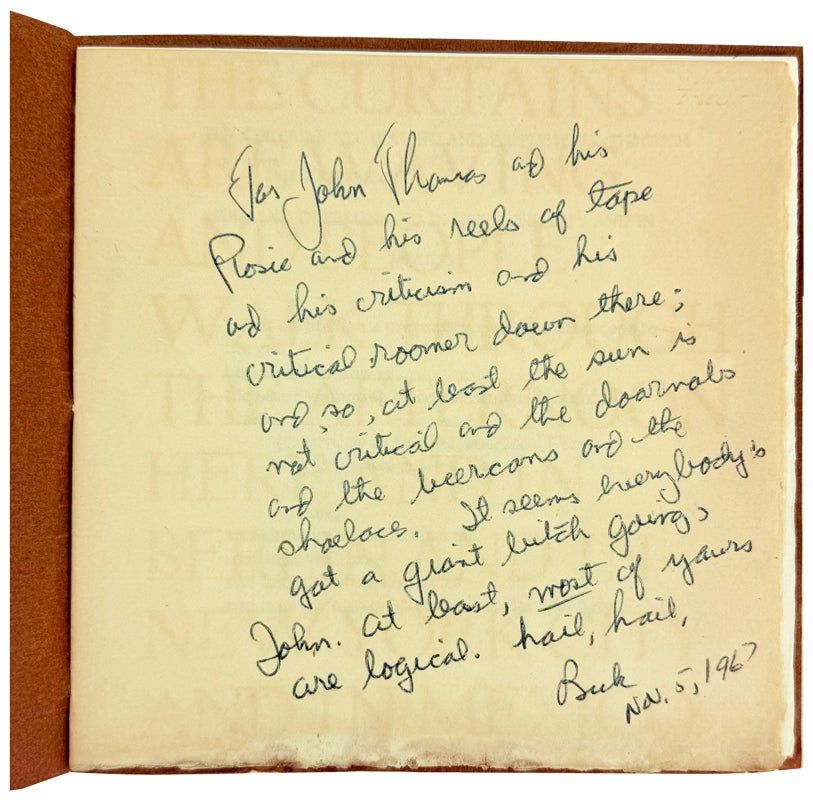 THE CURTAINS
For John Thomas and his
Rosie and his reels of tape
and his criticism and his
critical roomer down there;
and, so, at least the sun is
not critical and the doornobs
and the beercans and the
shoelace. It seems everybody's
got a giant bitch going,
John. at least, most of yours
are logical. hail, hail,
Buk
Nov. 5, 1967